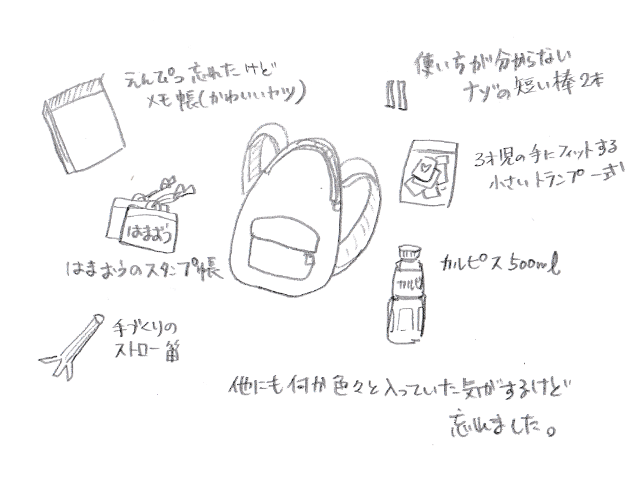 えんぴつ忘れたけど
メモ帳(かわいいヤツ)
使い方が分からない
ナゾの短い棒2本
3才児の手にフィットする
小さいトランプ一式
はまおう
はまおうのスタンプ帳
カルピス500ml
カルピ
手づくりの
ストロー笛
他にも何か色々と入っていた気がするけど
忘れました。